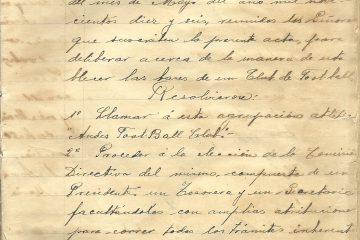 del mes de Mayo del año mil nove
cientos diez y seis, reunidos los Señores
que suscriben la presente acta, para
deliberar a cerca de la manera de esta
blecer las bases de un Club de Foot ball
Resolvieron:
1º Llamar á esta agrupación atléti
"Andes Foot Ball Club".-
2º Proceder á la elección de la Comisión
Directiva del mismo, compuesta de un
Presidente un Tesorero y un Secretario
facultándolos con amplias atribuciones
para correr todos los trámites inherent